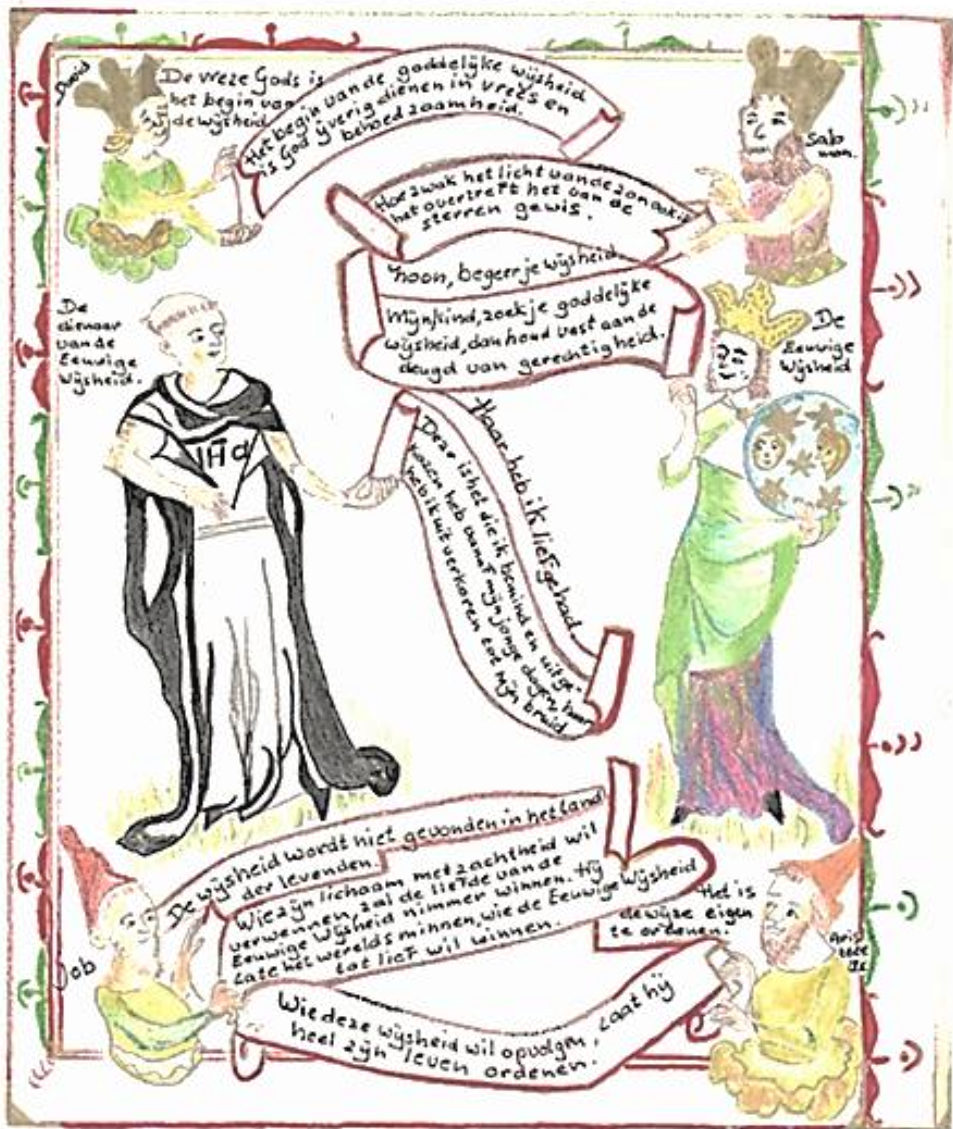 David
De vreze Gods is
het begin van
de wijsheid
Het begin van de goddelijke wijsheid
is God ijverig dienen in vrees en
behoedzaamheid.
Salo
mon.
Hoe zwak het licht van de zon ook is
het overtreft het van de
sterren gewis.
Zoon, begeer je wijsheid.
Mijn kind, zoek je goddelijke
wijsheid, dan houd vast aan de
deugd van gerechtigheid.
De
dienaar
van de
Eeuwige
Wijsheid.
De
Eeuwige
Wijsheid
Haar heb ik liefgehad.
Deze is het die ik bemind en uitge-
kozen heb vanaf mijn jonge dagen, haar
heb ik uitverkoren tot mijn bruid
De wijsheid wordt niet gevonden in het land
der levenden.
Wie zijn lichaam met zachtheid wil
verwennen, zal de liefde van de
Eeuwige Wijsheid nimmer winnen. Hij
late het werelds minnen, wie de Eeuwige Wijsheid
tot lief wil winnen.
Job
Het is
de wijze eigen
te ordenen.
Aris
tote
les
Wie deze wijsheid wil opvolgen, laat hij
heel zijn leven ordenen.